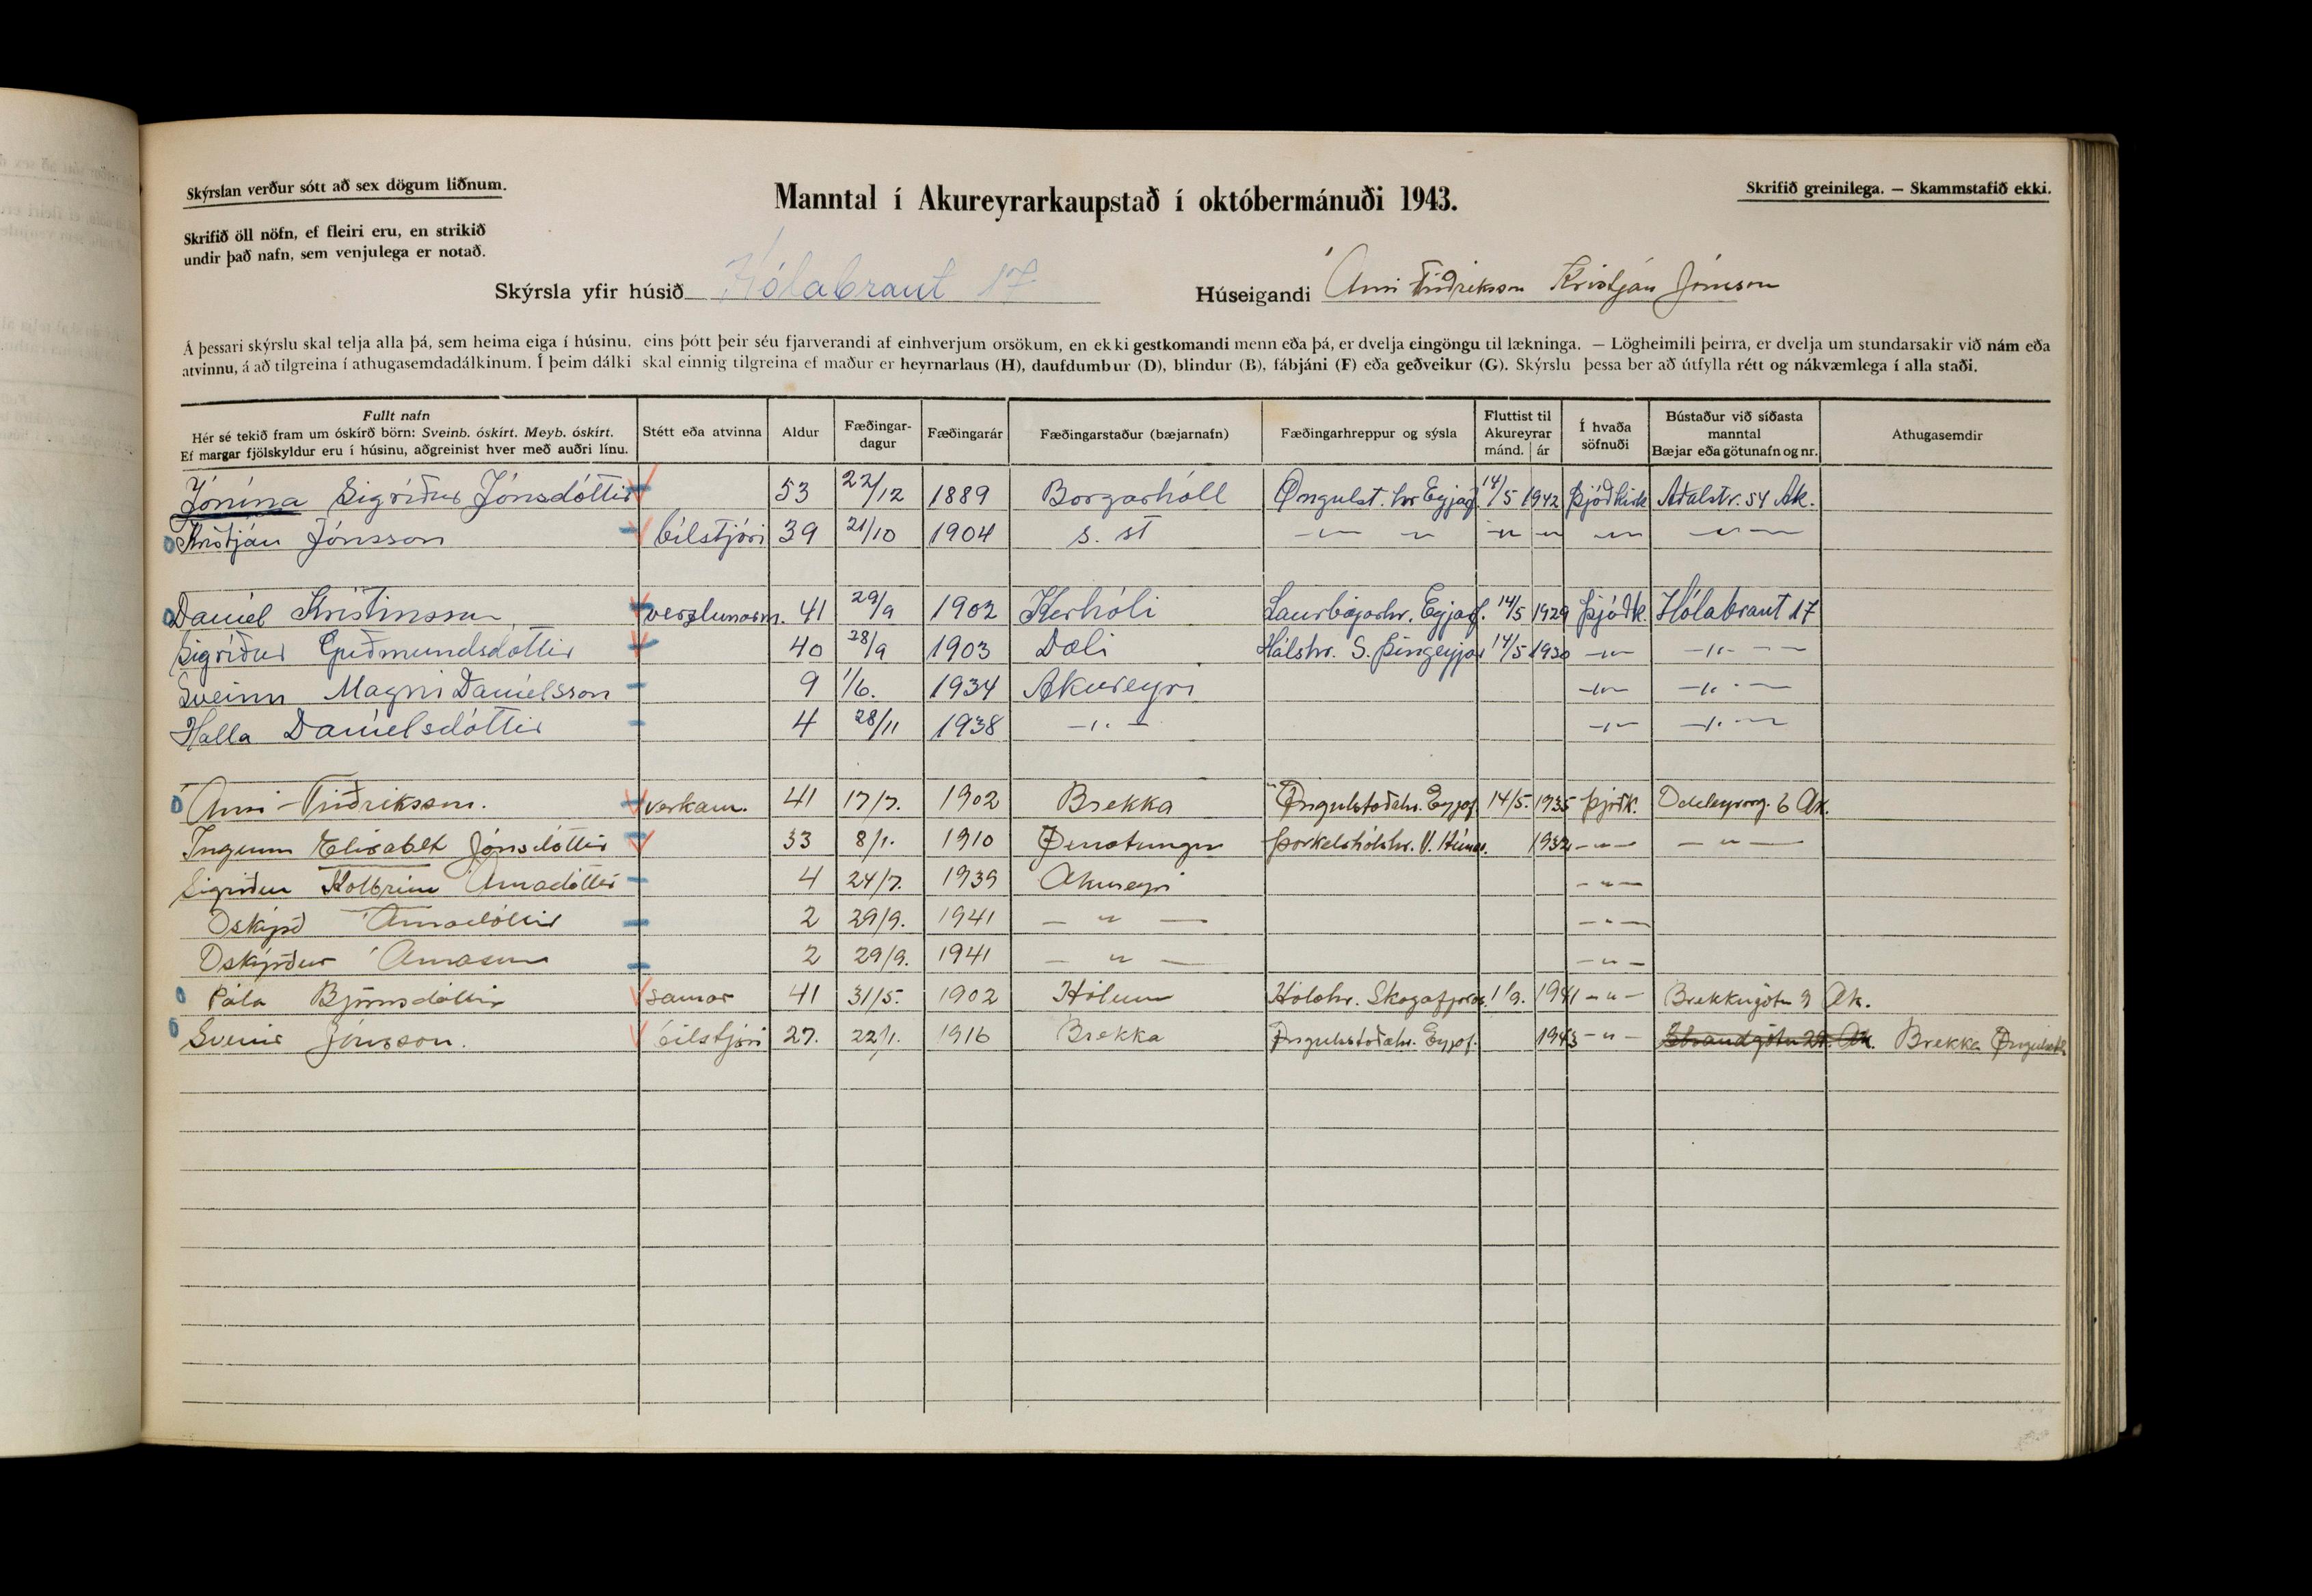 Skýrslan verður sótt að sex dögum liðnum.
Manntal í Akureyrarkaupstað í októbermánuði 1943.
Skrifið greinilega. — Skammstafið ekki.
Skrifið öll nöfn, ef fleiri eru, en strikið
undir það nafn, sem venjulega er notað.
Skýrsla yfir húsið Hólabraut 17
Húseigandi Árni Friðriksson Kristján Jónsson
Á þessari skýrslu skal telja alla þá, sem heima eiga í húsinu, eins þótt þeir séu fjarverandi af einhverjum orsökum, en ekki gestkomandi menn eða þá, er dvelja eingöngu til lækninga. — Lögheimili þeirra, er dvelja um stundarsakir við nám eða
atvinnu, á að tilgreina í athugasemdadálkinum. Í þeim dálki skal einnig tilgreina ef maður er heyrnarlaus (H), daufdumbur (D), blindur (B), fábjáni (F) eða geðveikur (G). Skýrslu þessa ber að útfylla rétt og nákvæmlega í alla staði.
Fullt nafn
Hér sé tekið fram um óskírð börn: Sveinb. óskírt. Meyb. óskírt.
Ef margar fjölskyldur eru í húsinu, aðgreinist hver með auðri línu.
Stétt eða atvinna
Aldur
Fæðingar-
dagur
Fæðingarár
Fæðingarstaður (bæjarnafn)
Fæðingarhreppur og sýsla
Fluttist til
Akureyrar
mánd. ár
Í hvaða
söfnuði
Bústaður við síðasta
manntal
Bæjar eða götunafn og nr.
Athugasemdir
Jónína Sigríður Jónsdóttir 53 22/12 1889 Borgarhóll Öngulst. hr Eyjaf. 14/5 1942 Þjóðkirk Aðalstr. 54 Ak.
Kristján Jónsson bílstjóri 39 21/10 1904 s. st — " — " — " — " — " — — " —
Daníel Kristinsson verzlunarm. 41 29/9 1902 Kerhóli Saurbæjarhr. Eyjaf. 14/5 1929 Þjóðk. Hólabraut 17
Sigríður Guðmundsdóttir 40 28/9 1903 Dæli Hálshr. S. Þingeyjar 14/5 1930 — " — — " — —
Sveinn Magni Daníelsson 9 1/6. 1934 Akureyri — " — — " — —
Halla Daníelsdóttir 4 28/11 1938 — " — — " — — " — —
Árni Friðriksson. verkam. 41 17/7. 1902 Brekka Öngulstaðahr. Eyjaf. 14/5. 1935 Þjóðk. Oddeyrarg. 6 Ak.
Ingunn Elísabet Jónsdóttir 33 8/1. 1910 Þorkelshólshr. V. Húnav. 1932 — " — — " —
Sigríður Kolbrún Árnadóttir 4 24/7. 1939 Akureyri — " —
Óskýrð Árnadóttir 2 29/9. 1941 — " — — " —
Óskýrður Árnason 2 29/9. 1941 — " — — " —
Pála Björnsdóttir saumar 41 31/5. 1902 Hólum Hólahr. Skagafjarðar. 1/9. 1941 — " — Brekkugötu 9 Ak.
Sverrir Jónsson. bílstjóri 27. 22/1. 1916 Brekka Öngulsstaðahr. Eyjaf. 1943 — " — Strandgötu 29. Ak. Brekka